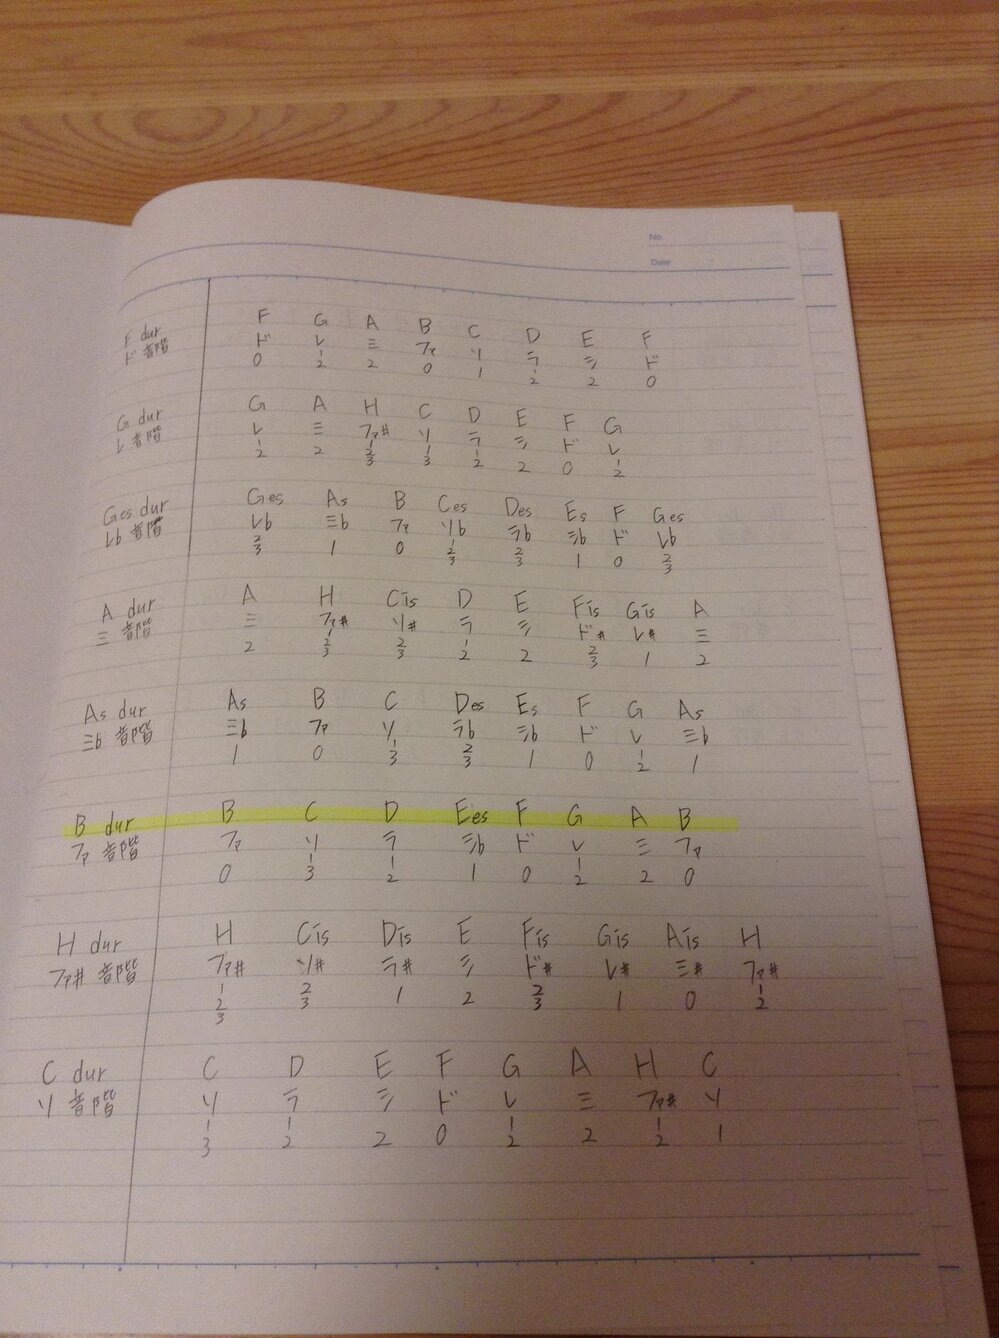 No.
Date
F dur F G A B C D E F
ド音階 ド レ ミ ファ ソ ラ シ ド
0 1 2 0 1 1 2 0
2 2
G dur G A H C D E F G
レ音階 レ ミ ファ# ソ ラ シ ド レ
1 2 1 1 1 2 0 1
2 2 3 2 2
3
Ges dur Ges As B Ces Des Es F Ges
レb音階 レb ミb ファ ソb ラb シb ド レb
2 1 0 1 2 1 0 2
3 2 3 3
3
A dur A H Cis D E Fis Gis A
ミ音階 ミ ファ# ソ# ラ シ ド# レ# ミ
2 1 2 1 2 2 1 2
2 3 2 3
3
As dur As B C Des Es F G As
ミb音階 ミb ファ ソ ラb シb ド レ ミb
1 0 1 2 1 0 1 1
3 3 2
B dur B C D Ees F G A B
ファ音階 ファ ソ ラ シb ド レ ミ ファ
0 1 1 1 0 1 2 0
3 2 2
H dur H Cis Dis E Fis Gis Ais H
ファ#音階 ファ# ソ# ラ# シ ド# レ# ミ# ファ#
1 2 1 2 2 1 0 1
2 3 3 2
3
C dur C D E F G A H C
ソ音階 ソ ラ シ ド レ ミ ファ# ソ
1 1 2 0 1 2 1 1
3 2 2 2